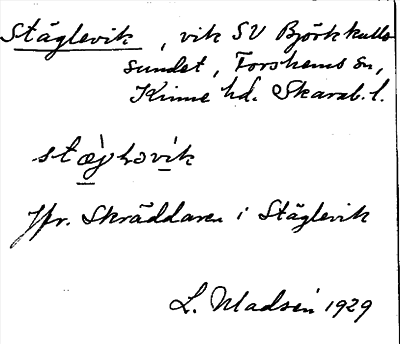 Stäglevik, vik SV Björkkulla
sundet, Forshems sn,
Kinne hd. Skarab. l.
jfr. Skräddaren i Stäglevik
L. Madsén 1929